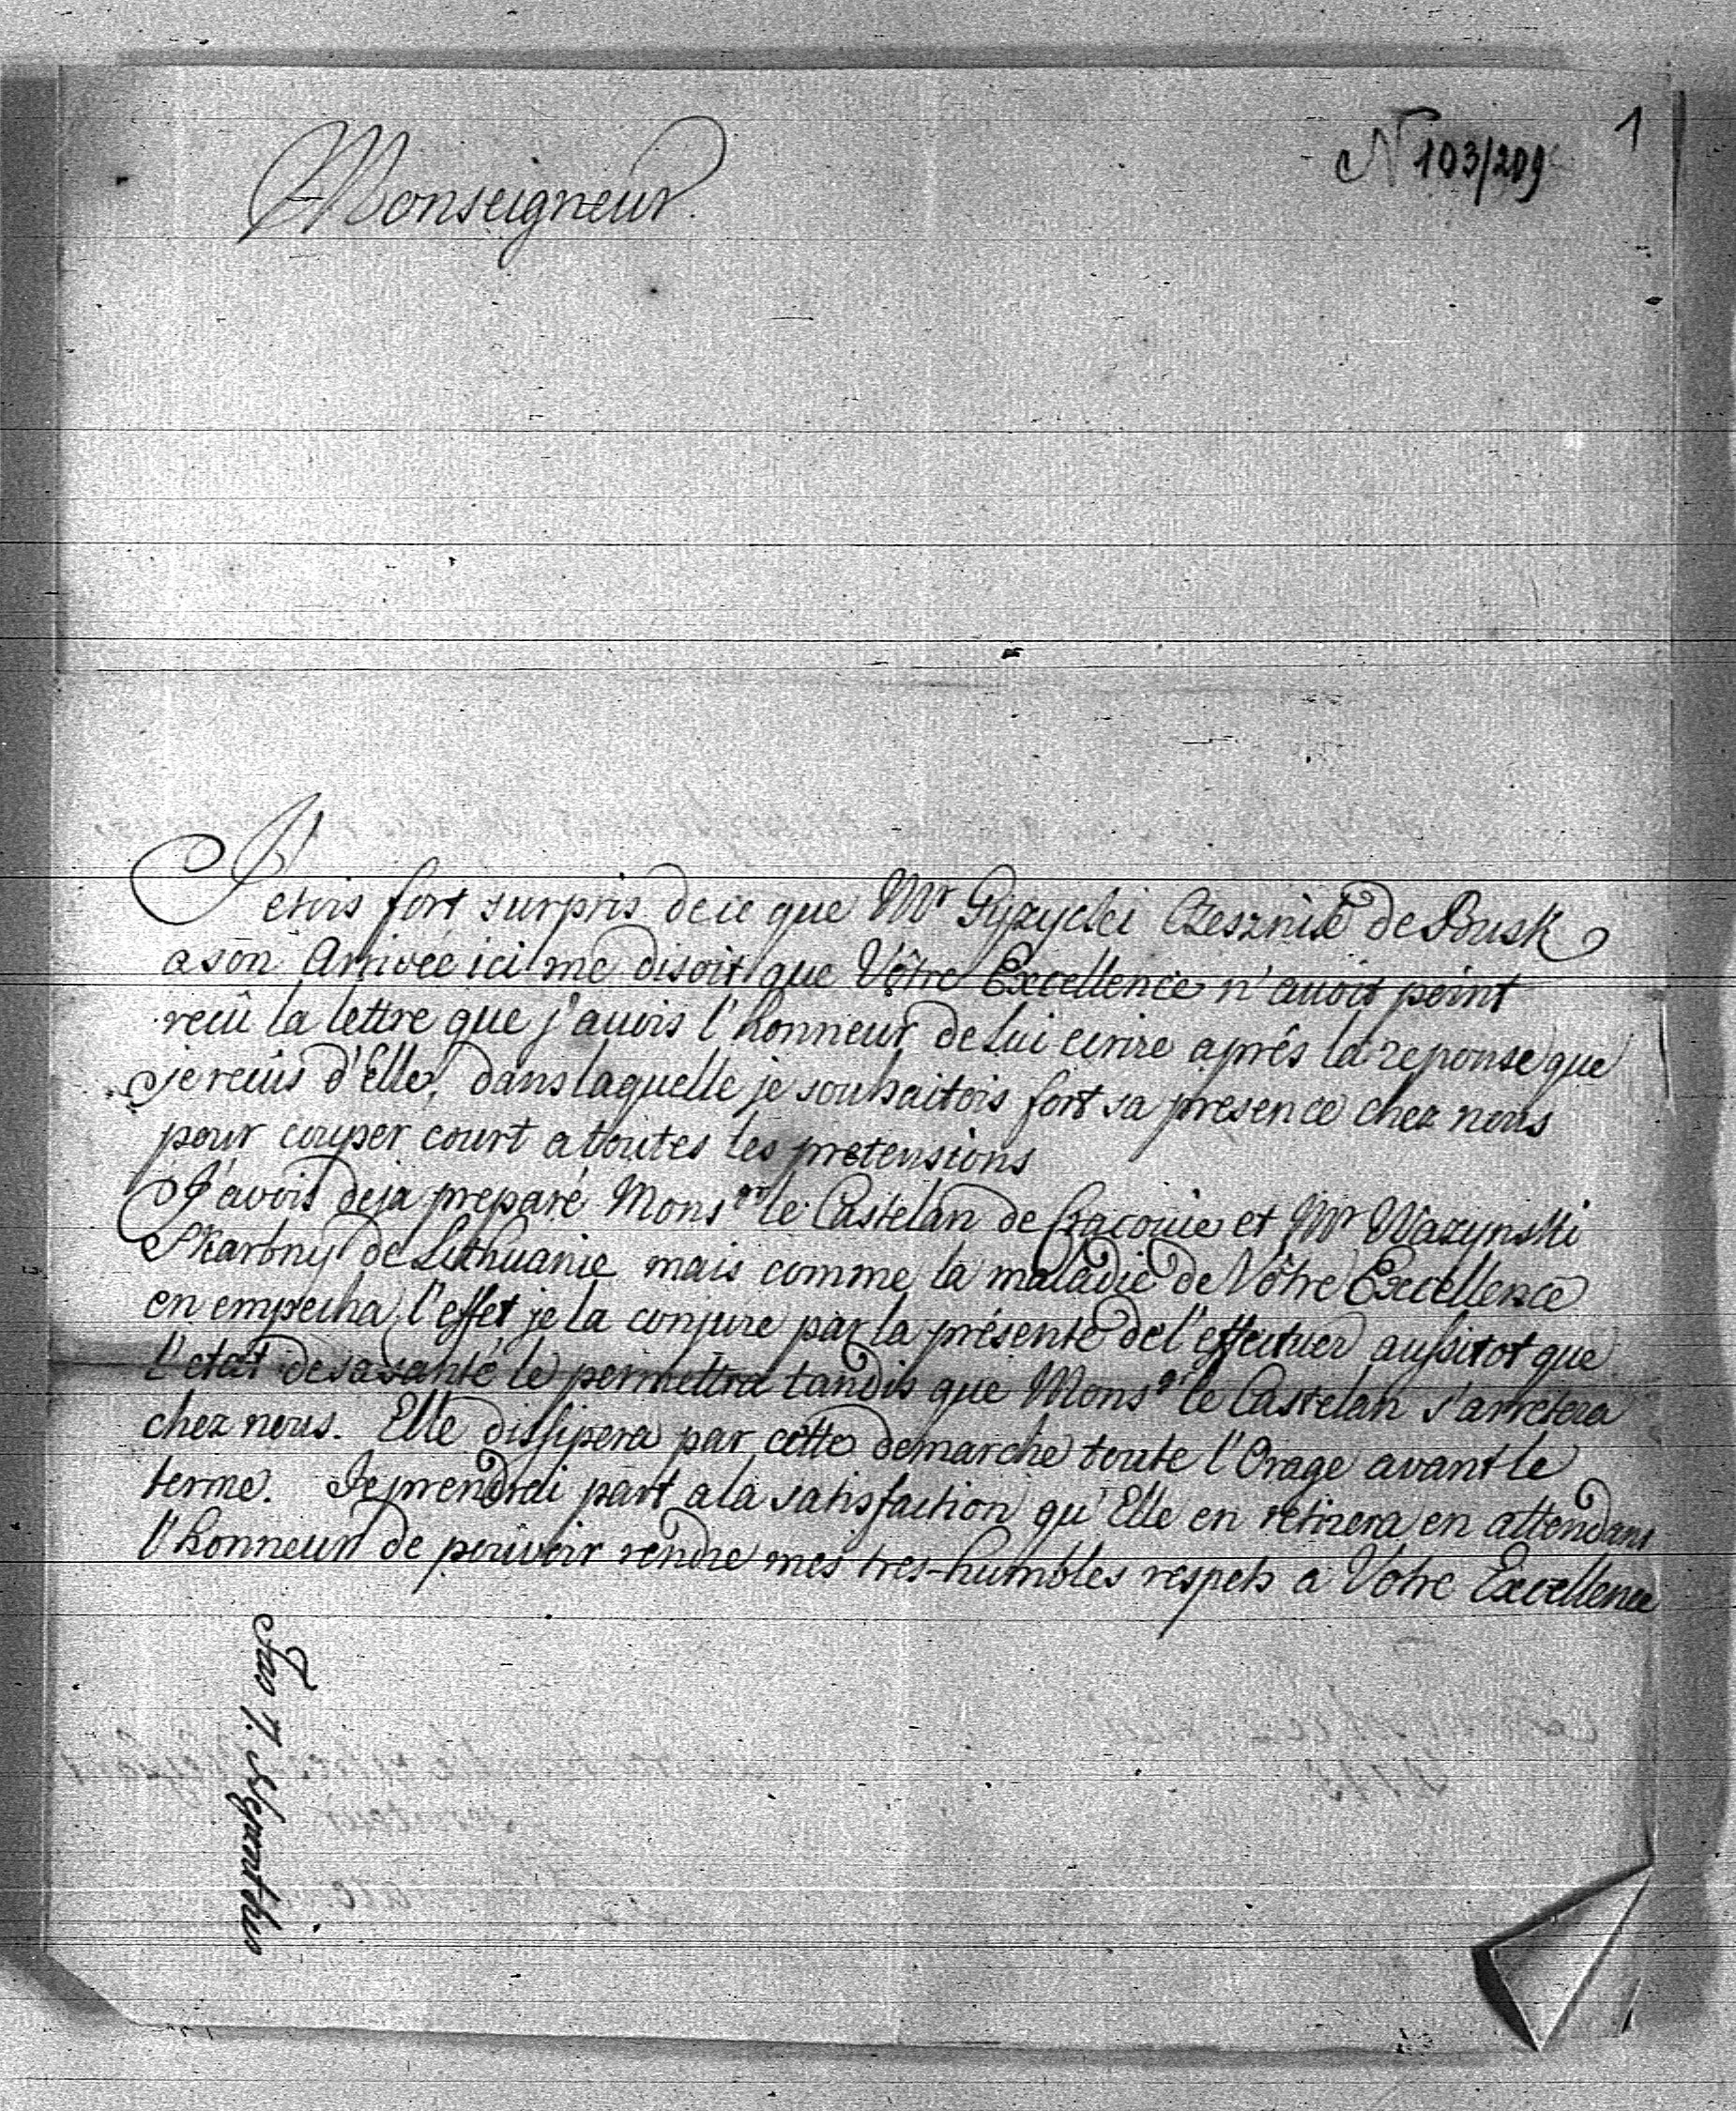 1
N 103/209
Monseigneur.
J'etois fort surpris de ce que Mr Gyzycki Czesznik de Busk
a son Arrivée ici me disoit que Vôtre Excellence n'avoit point
recû la lettre que j'avois l'honneur de Lui ecrire aprés la reponse que
je recûs d'Elle, dans laquelle je souhaitois fort sa presence chez nous
pour couper court a toutes les pretensions
J'avois deja preparé Monsgr le Castelan de Cracovie et Mr Wazynski
Skarbny de Lithuanie mais comme la maladie de Vôtre Excellence
en empecha l'effet je la conjure par la présente de l'effectuer aussitot que
l'etat de sa santé le permettra tandis que Monsgr le Castelan s'arretera
chez nous. Elle dissipera par cette demarche toute l'Orage avant le
terme. Je prendrai part a la satisfaction qu'Elle en retirera en attendant
l'honneur de pouvoir rendre mes tres-humbles respets a Vôtre Excellence